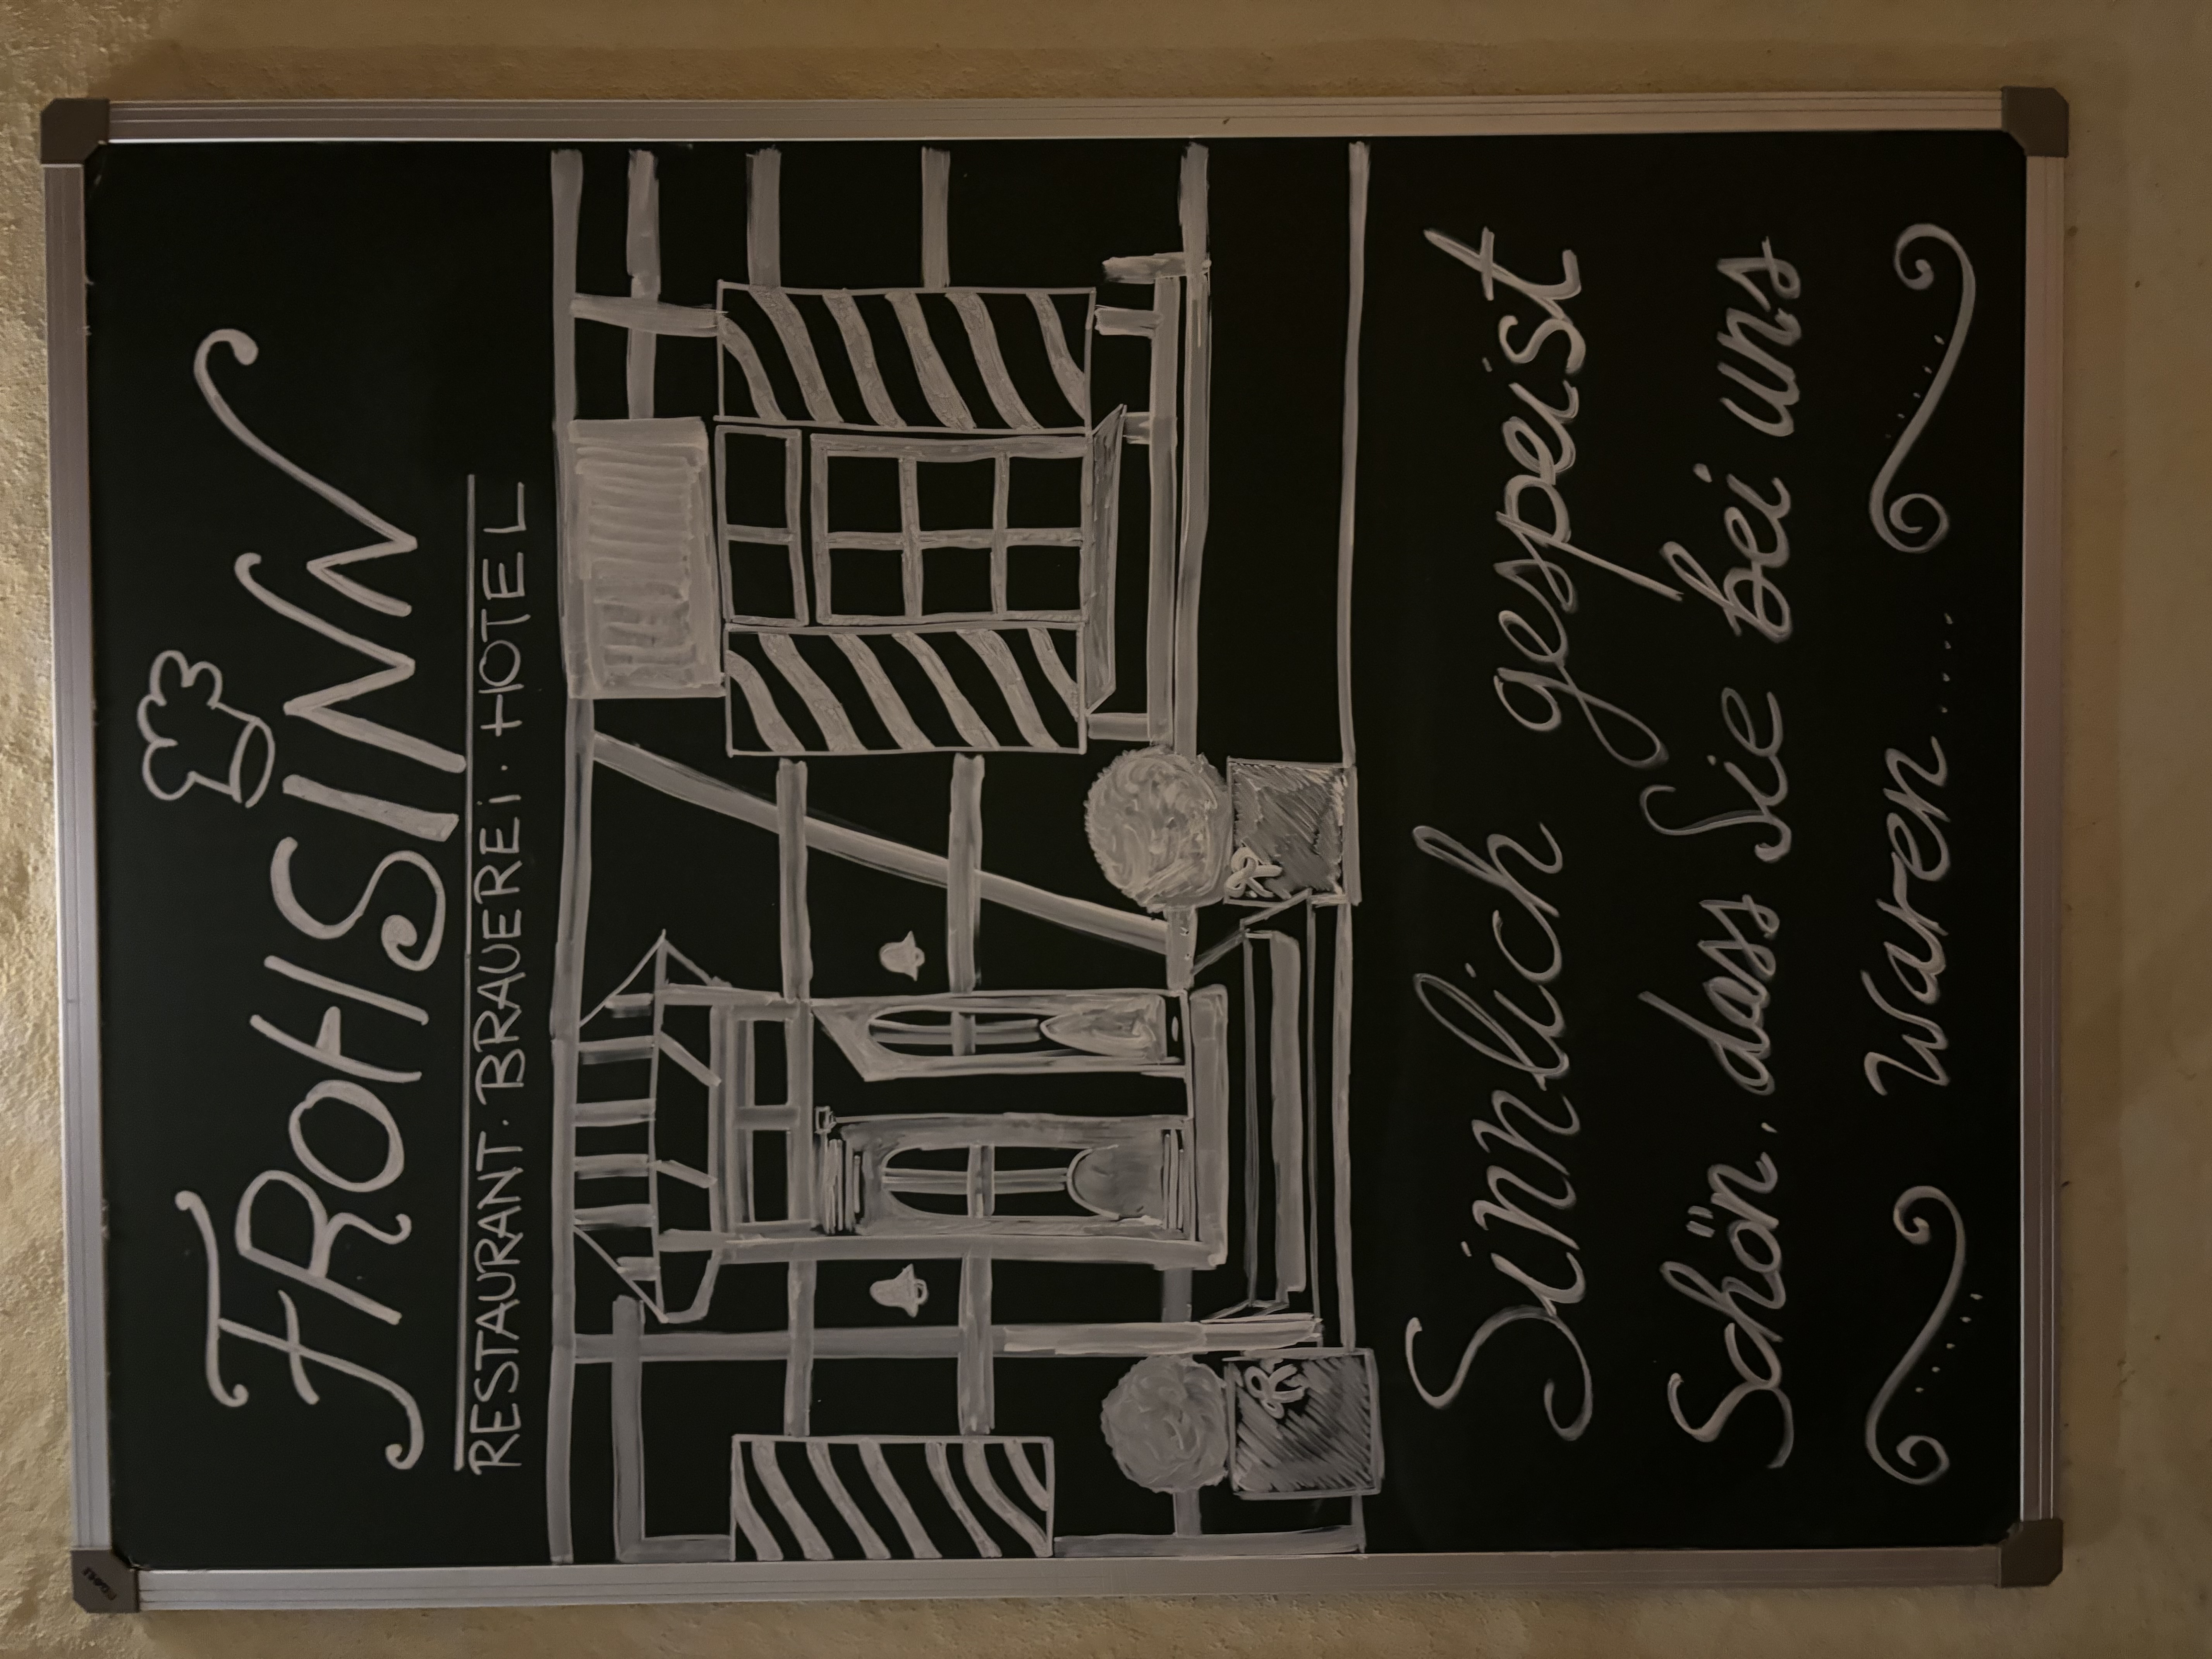 FROHSINN
RESTAURANT · BRAUEREi · HOTEL
Sinnlich gespeist
Schön, dass Sie bei uns
waren....